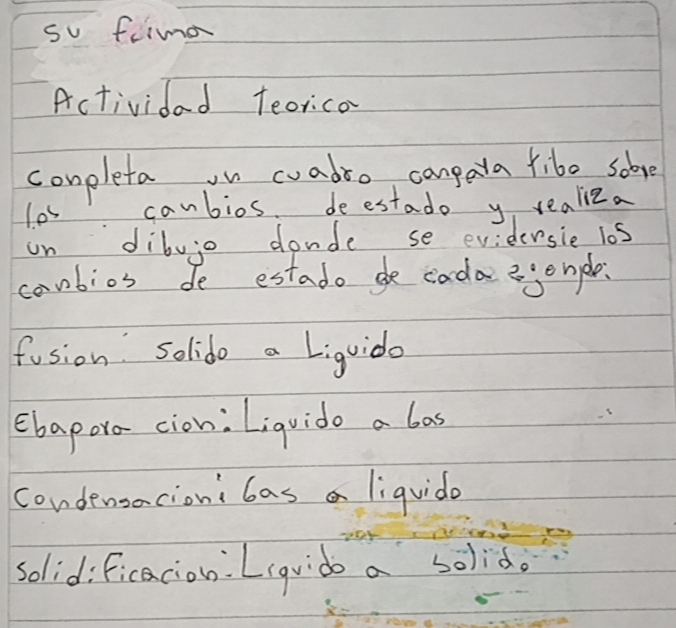 su fcima
Actividad teorica
conpleta un cuadro canparatibo sobre
los canbios. de estado y realiza
un dibujo donde se evidensie los
canbios de estado de cada ejenplo:
fusion: Solido a Liquido
Ebapora cion: Liquido a Gas
Condensacion: Gas a liquido
Solidificacion: Liquido a solido